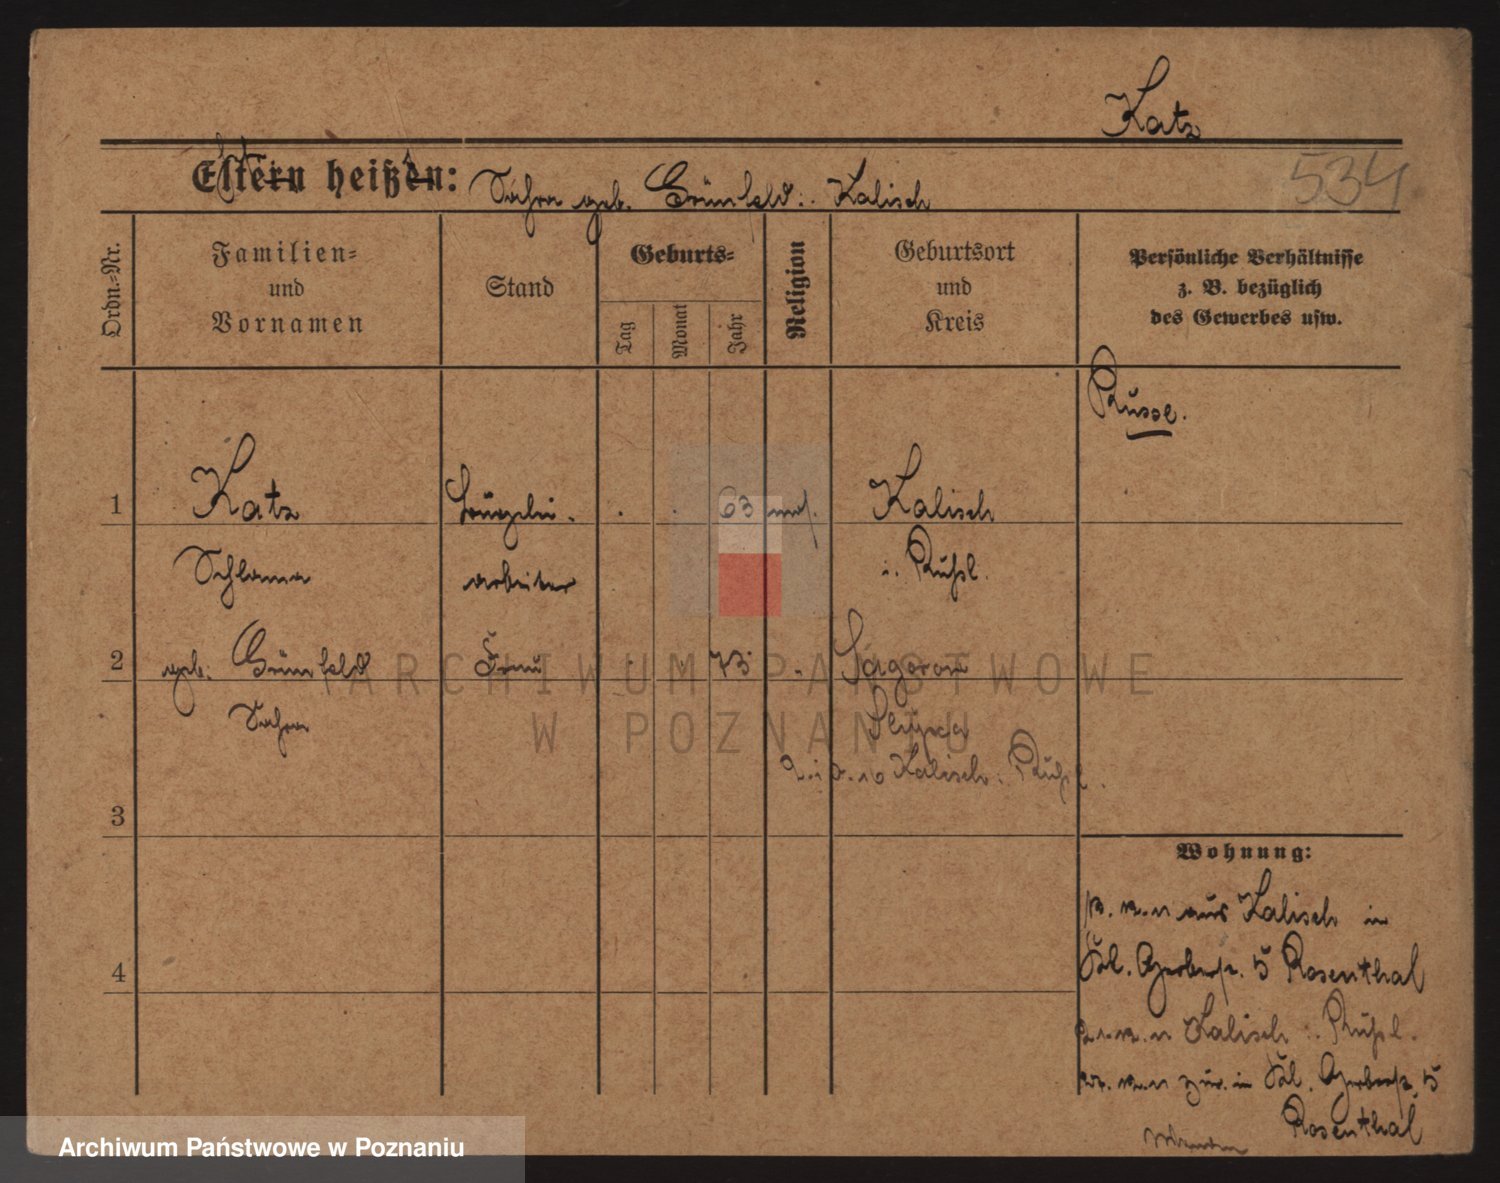 Katz
534
Eltern heißen: Sahra geb. Grünfeld: Kalisch
Ordn.-Nr.
Familien-
und
Vornamen
Stand
Geburts-
Tag
Monat
Jahr
Religion
Geburtsort
und
Kreis
Persönliche Verhältnisse
z. B. bezüglich
des Gewerbes usw.
Russe.
1
Katz
63
Kalisch
Schlama
arbeiter
i. Rußl.
2
geb. Grünfeld
Frau
73
Sagorow
Sahra
Slupca
Kalisch i. Rußl.
3
Wohnung:
aus Kalisch in
Gerberstr. 5 Rosenthal
4
n Kalisch i. Rußl.
zur. in Gerberstr. 5
Rosenthal
ARCHIWUM PAŃSTWOWE
W POZNANIU
Archiwum Państwowe w Poznaniu